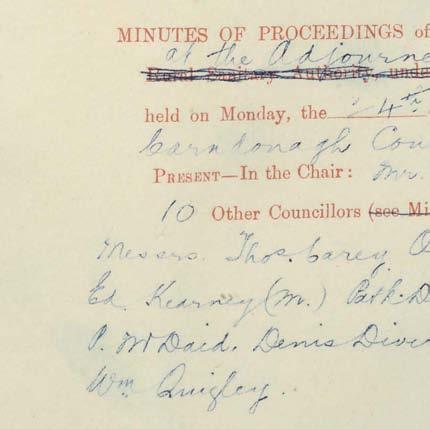 MINUTES OF PROCEEDINGS of
at the Adjourne
Rural Sanitary Authority, unde
held on Monday, the 4th
Carndonagh Cou
PRESENT—In the Chair: Mr.
10 Other Councillors (see Mi
Messrs. Thos. Carey,
Ed. Kearney (M.) Patk. D
P. McDaid, Denis Diver
Wm Quigley.